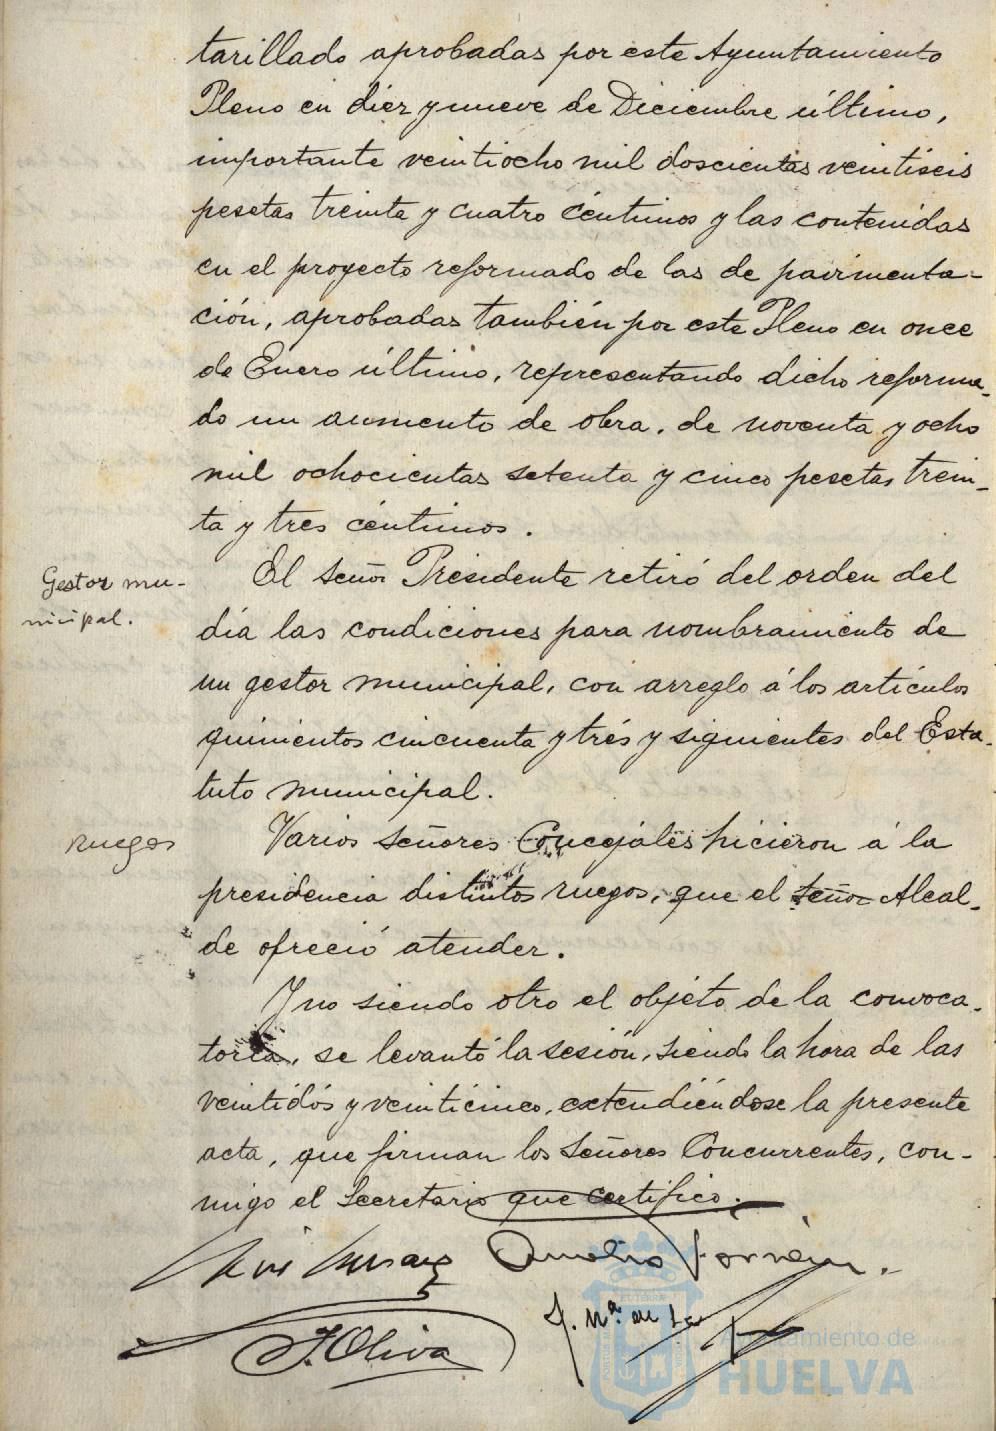 tarillado aprobadas por este Ayuntamiento
Pleno en diez y nueve de Diciembre último,
importante veintiocho mil doscientas veintiseis
pesetas treinta y cuatro céntimos y las contenidas
en el proyecto reformado de las de pavimenta-
ción, aprobadas también por este Pleno en once
de Enero último, representando dicho reforma-
do un aumento de obra, de noventa y ocho
mil ochocientas setenta y cinco pesetas trein-
ta y tres céntimos.
Gestor mu-
nicipal.
El señor Presidente retiró del orden del
día las condiciones para nombramiento de
un gestor municipal, con arreglo á los artículos
quinientos cincuenta y trés y siguientes del Esta-
tuto municipal.
ruegos
Varios señores Concejales hicieron á la
presidencia distintos ruegos, que el señor Alcal-
de ofreció atender.
Y no siendo otro el objeto de la convoca-
toria, se levantó la sesión, siendo la hora de las
veintidós y veinticinco, extendiéndose la presente
acta, que firman los señores Concurrentes, con-
migo el Secretario que certifico.
J. Oliva
Ayuntamiento de
HUELVA